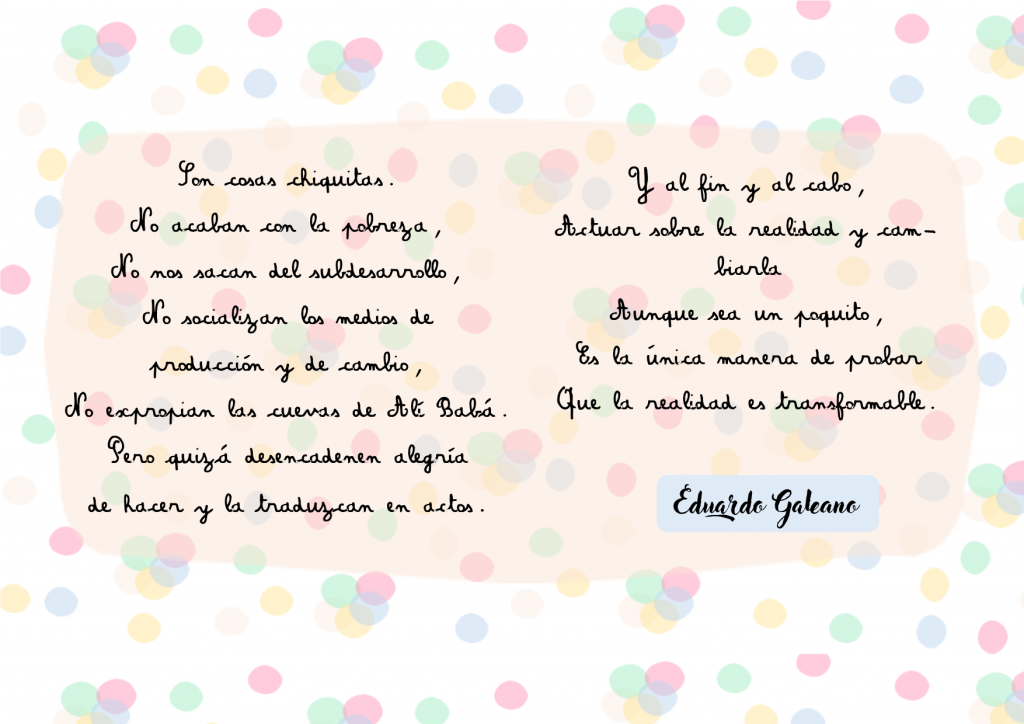 Son cosas chiquitas.
No acaban con la pobreza,
No nos sacan del subdesarrollo,
No socializan los medios de
producción y de cambio,
No expropian las cuevas de Alí Babá.
Pero quizá desencadenen alegría
de hacer y la traduzcan en actos.
Y al fin y al cabo,
Actuar sobre la realidad y cam-
biarla
Aunque sea un poquito,
Es la única manera de probar
Que la realidad es transformable.
Eduardo Galeano